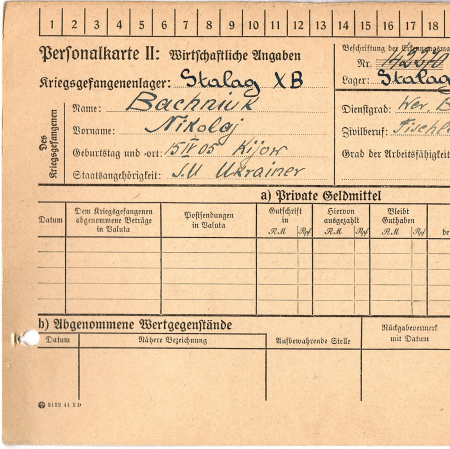 1 2 3 4 5 6 7 8 9 10 11 12 13 14 15 16 17 18
Personalkarte II: Wirtschaftliche Angaben
Beschriftung der
Nr.
Kriegsgefangenenlager: Stalag XB
Lager: Stalag
Des Kriegsgefangenen
Name: Bachniuk
Vorname: Nikolaj
Geburtstag und -ort: 15 IV 05 Kijow
Staatsangehörigkeit: S.U Ukrainer
Dienstgrad:
Zivilberuf: Tischl
Grad der Arbeitsfähigkeit
a) Private Geldmittel
Datum
Dem Kriegsgefangenen abgenommene Beträge in Valuta
Postsendungen in Valuta
Gutschrift in
RM Rpf
Hiervon ausgezahlt
RM Rpf
Bleibt Guthaben
RM Rpf
be
b) Abgenommene Wertgegenstände
Datum
Nähere Bezeichnung
Aufbewahrende Stelle
Rückgabevermerk mit Datum